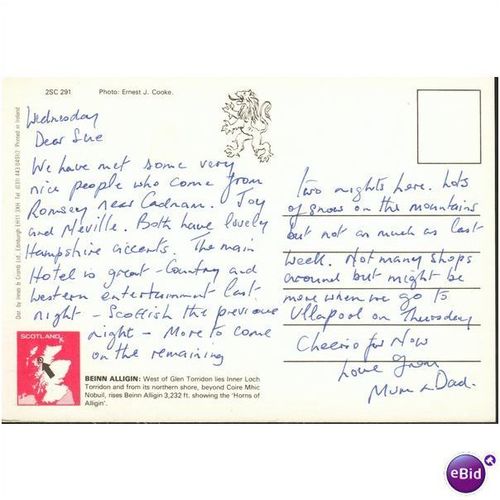 2SC 291 Photo: Ernest J. Cooke.
Wednesday
Dear Sue
We have met some very
nice people who come from
Romsey near Cadnam. Joy
and Neville. Both have lovely
Hampshire accents. The main
Hotel is great - Country and
western entertainment last
night - Scottish the previous
night - More to come
on the remaining
two nights here. Lots
of snow on the mountains
but not as much as last
week. Not many shops
around but might be
more when we go to
Ullapool on Thursday
Cheerio for Now
Love from
Mum & Dad.
SCOTLAND
BEINN ALLIGIN: West of Glen Torridon lies Inner Loch
Torridon and from its northern shore, beyond Coire Mhic
Nobuil, rises Beinn Alligin 3,232 ft. showing the 'Horns of
Alligin'.
Printed in Ireland
eBid